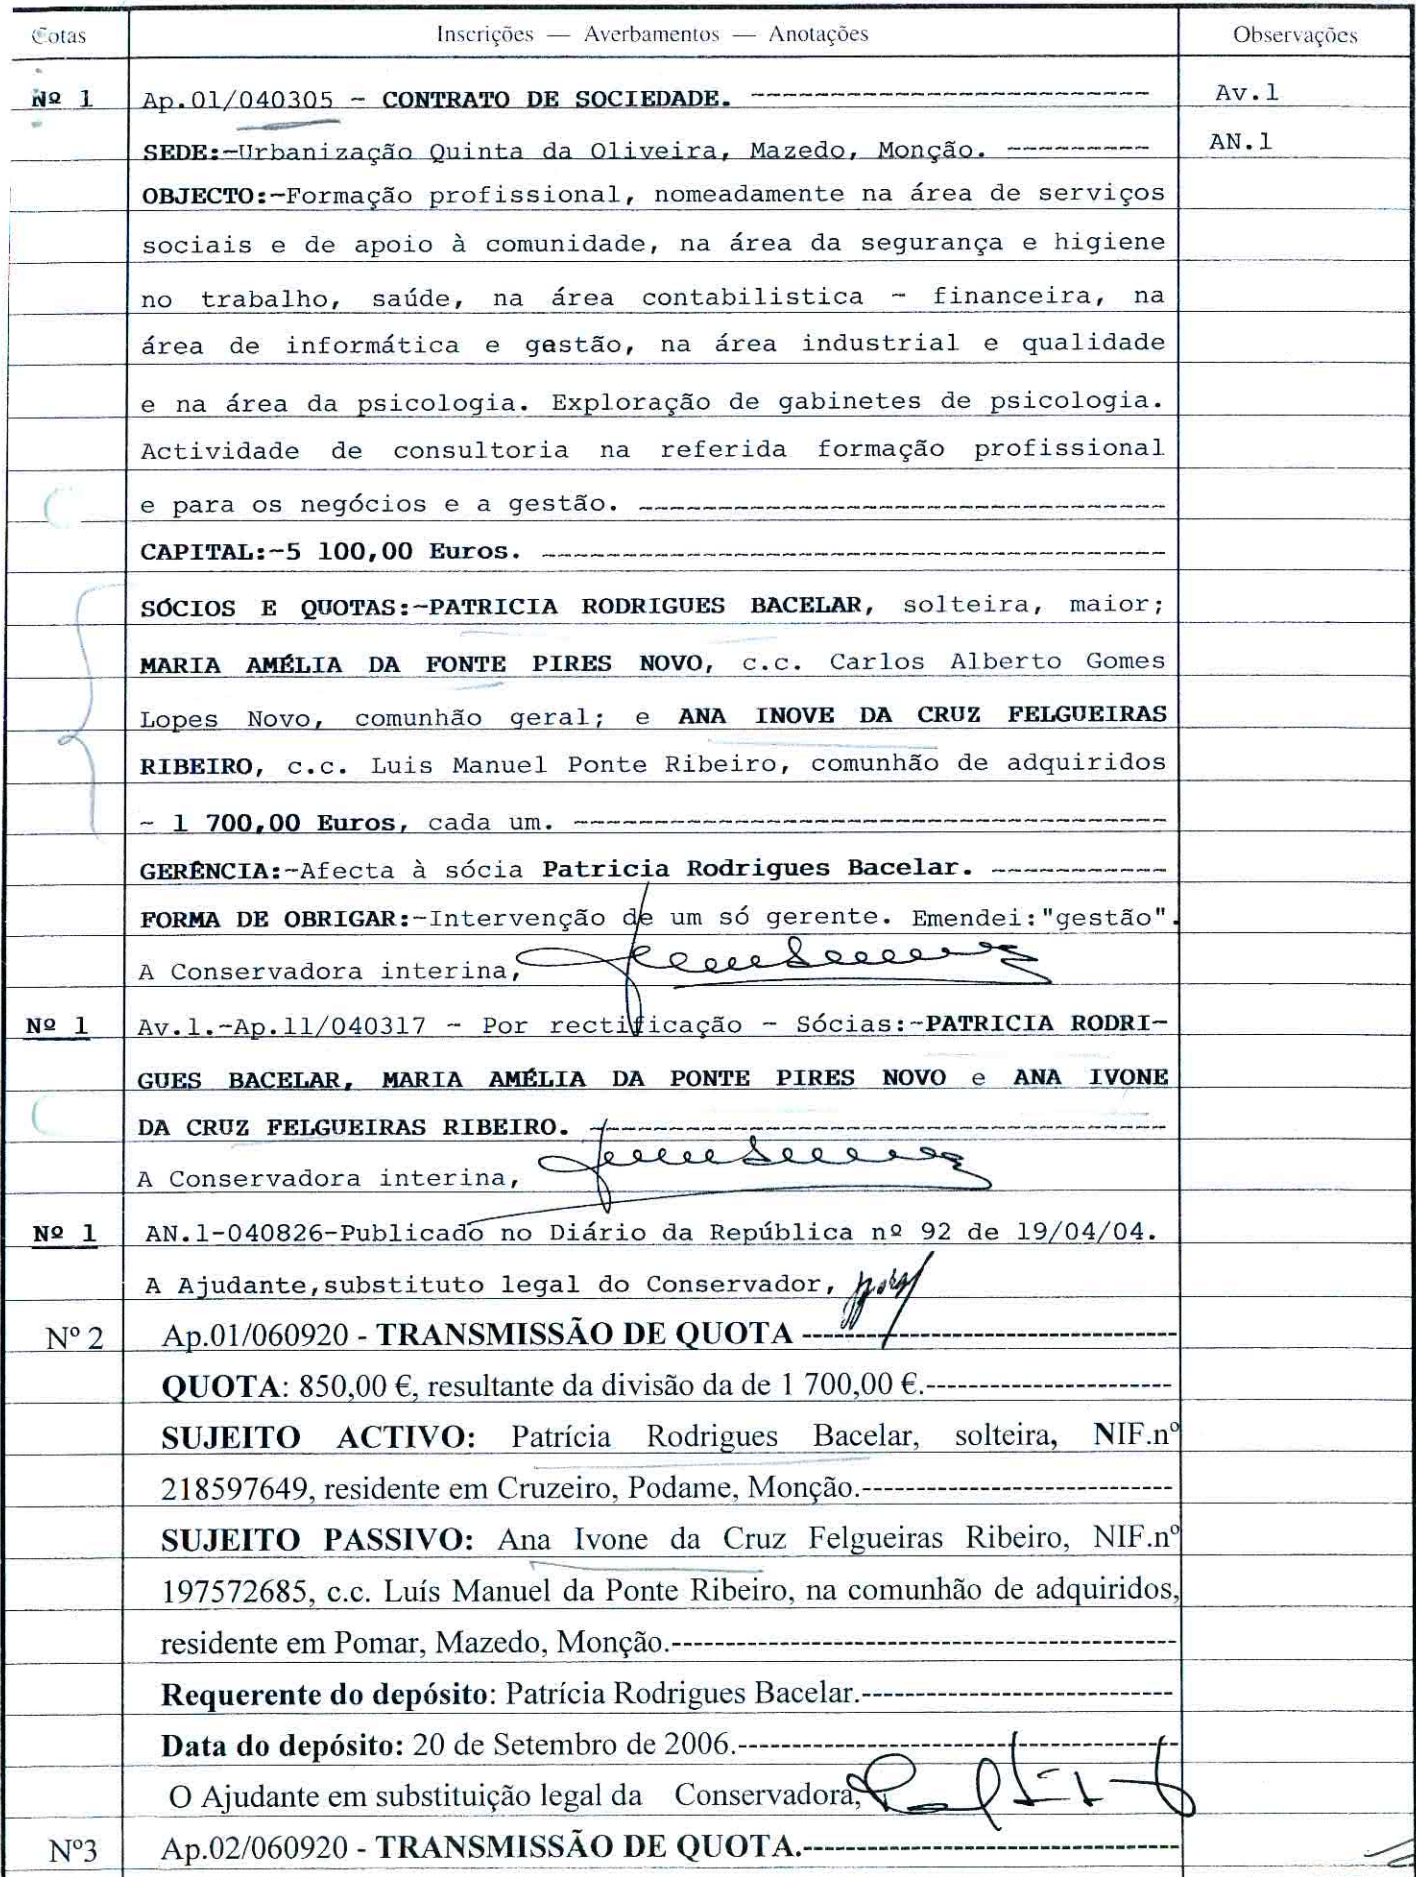 Cotas Inscrições — Averbamentos — Anotações Observações
Nº 1 Ap.01/040305 - CONTRATO DE SOCIEDADE. ------------------------- Av.1
SEDE:-Urbanização Quinta da Oliveira, Mazedo, Monção. --------- AN.1
OBJECTO:-Formação profissional, nomeadamente na área de serviços
sociais e de apoio à comunidade, na área da segurança e higiene
no trabalho, saúde, na área contabilistica - financeira, na
área de informática e gestão, na área industrial e qualidade
e na área da psicologia. Exploração de gabinetes de psicologia.
Actividade de consultoria na referida formação profissional
e para os negócios e a gestão. ---------------------------------
CAPITAL:-5 100,00 Euros. ---------------------------------------
SÓCIOS E QUOTAS:-PATRICIA RODRIGUES BACELAR, solteira, maior;
MARIA AMÉLIA DA FONTE PIRES NOVO, c.c. Carlos Alberto Gomes
Lopes Novo, comunhão geral; e ANA INOVE DA CRUZ FELGUEIRAS
RIBEIRO, c.c. Luis Manuel Ponte Ribeiro, comunhão de adquiridos
- 1 700,00 Euros, cada um. -------------------------------------
GERÊNCIA:-Afecta à sócia Patricia Rodrigues Bacelar. -----------
FORMA DE OBRIGAR:-Intervenção de um só gerente. Emendei:"gestão".
A Conservadora interina,
Nº 1 Av.1.-Ap.11/040317 - Por rectificação - Sócias:-PATRICIA RODRI-
GUES BACELAR, MARIA AMÉLIA DA PONTE PIRES NOVO e ANA IVONE
DA CRUZ FELGUEIRAS RIBEIRO. ------------------------------------
A Conservadora interina,
Nº 1 AN.1-040826-Publicado no Diário da República nº 92 de 19/04/04.
A Ajudante,substituto legal do Conservador,
Nº 2 Ap.01/060920 - TRANSMISSÃO DE QUOTA ------------------------------------------
QUOTA: 850,00 €, resultante da divisão da de 1 700,00 €.---------------------------
SUJEITO ACTIVO: Patrícia Rodrigues Bacelar, solteira, NIF.nº
218597649, residente em Cruzeiro, Podame, Monção.----------------------------------
SUJEITO PASSIVO: Ana Ivone da Cruz Felgueiras Ribeiro, NIF.nº
197572685, c.c. Luís Manuel da Ponte Ribeiro, na comunhão de adquiridos,
residente em Pomar, Mazedo, Monção.--------------------------------------------------------
Requerente do depósito: Patrícia Rodrigues Bacelar.-----------------------------------
Data do depósito: 20 de Setembro de 2006.------------------------------------------------
O Ajudante em substituição legal da Conservadora,
Nº3 Ap.02/060920 - TRANSMISSÃO DE QUOTA.------------------------------------------